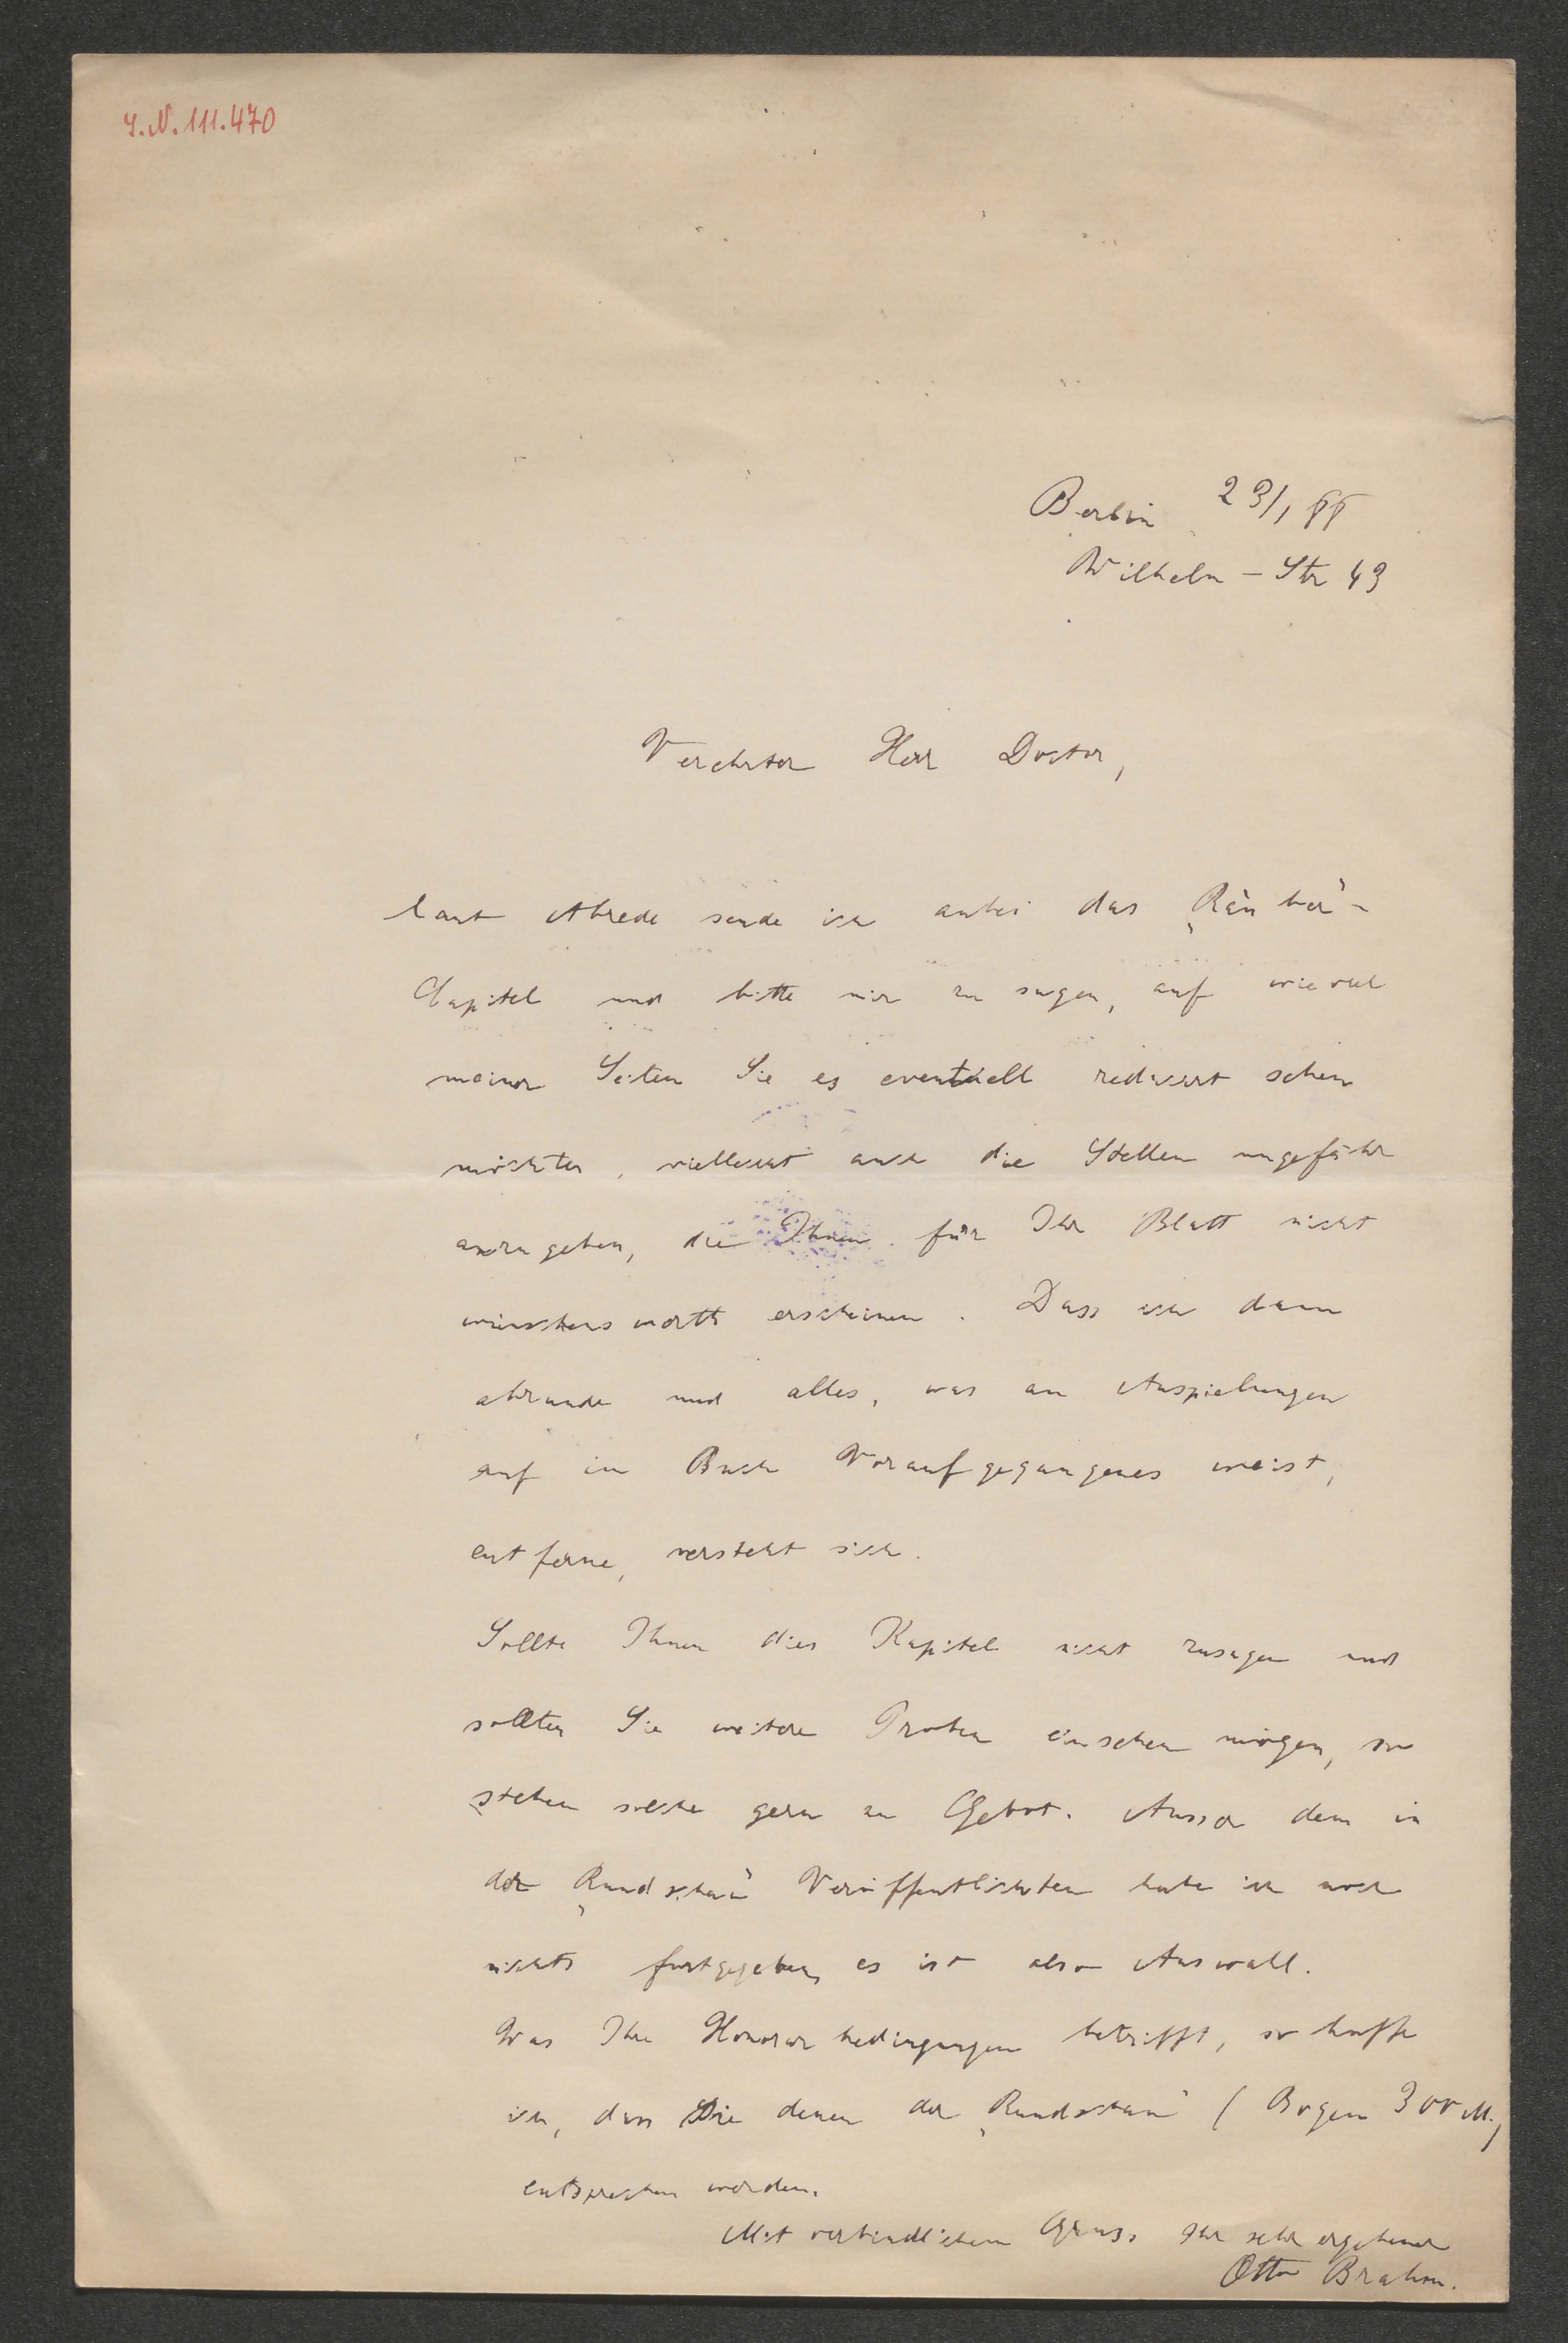 I.N. 111.470
Berlin 23/1 88
Wilhelm-Str 49
Verehrter Herr Doctor,
laut Abrede sende ich anbei das „Räuber“-
Capitel und bitte mir zu sagen, auf wie viel
meiner Seiten Sie es eventuell reducirt sehen
möchten, vielleicht auch die Stellen ungefähr
anzugeben, die Ihnen für Ihr Blatt nicht
wünschenswerth erscheinen. Dass ich dann
abrunde und alles, was an Anspielungen
auf im Buch Voraufgegangenes weist,
entferne, versteht sich.
Sollte Ihnen dies Kapitel nicht zusagen und
sollten Sie weitere Proben einsehen mögen, so
stehen solche gern zu Gebot. Ausser dem in
der „Rundschau“ Veröffentlichten habe ich noch
nichts fortgegeben, es ist also Auswahl.
Was Ihre Honorarbedingungen betrifft, so hoffe
ich, dass Sie denen der „Rundschau“ (Bogen 300 M.)
entsprechen werden.
Mit verbindlichem Gruss Ihr sehr ergebener
Otto Brahm.